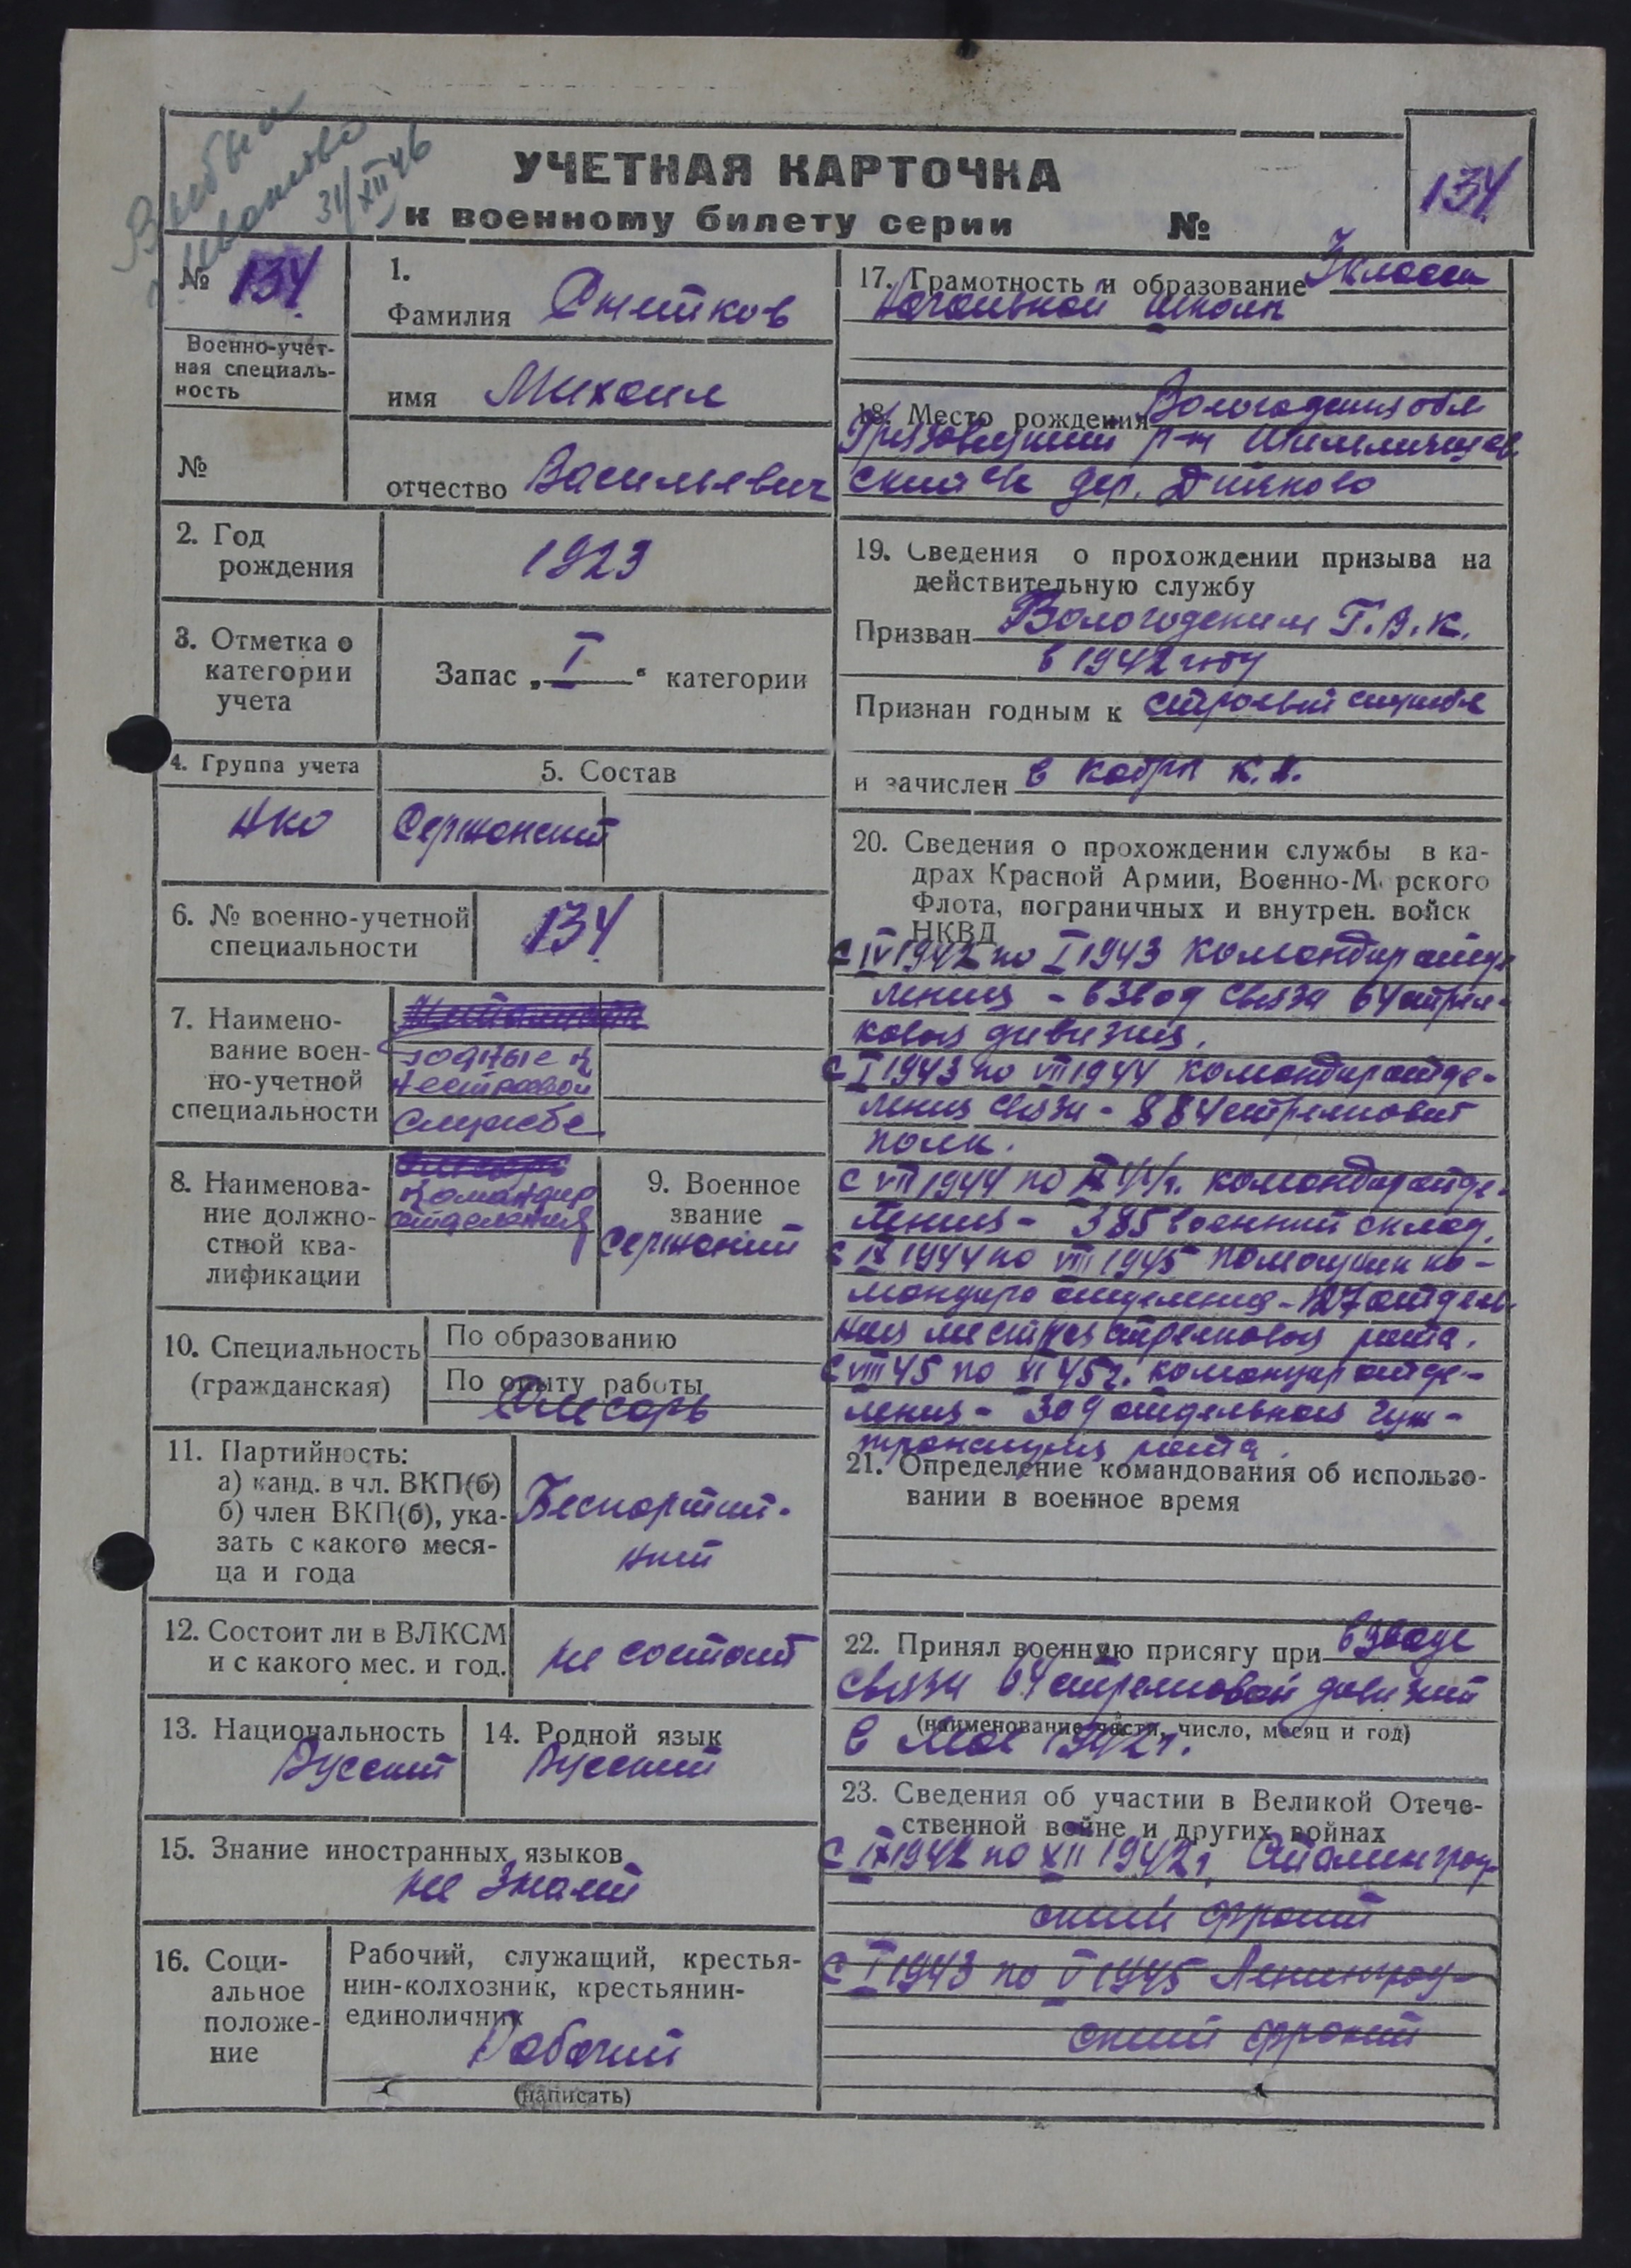 Выбыл
Иваново
31/XII 46
УЧЕТНАЯ КАРТОЧКА
к военному билету серии №
134
№ 134
Военно-учет-
ная специаль-
ность
№
1.
Фамилия Снетков
имя Михаил
отчество Васильевич
2. Год
рождения
1923
3. Отметка о
категории
учета
Запас „ I " категории
4. Группа учета
НКО
5. Состав
Сержанский
6. № военно-учетной
специальности
134
7. Наимено-
вание воен-
но-учетной
специальности
годные к
нестроевой
службе
8. Наименова-
ние должно-
стной ква-
лификации
командир
отделения
9. Военное
звание
Сержаний
10. Специальность
(гражданская)
По образованию
По опыту работы
Слесарь
11. Партийность:
а) канд. в чл. ВКП(б)
б) член ВКП(б), ука-
зать с какого меся-
ца и года
Беспартий-
ний
12. Состоит ли в ВЛКСМ
и с какого мес. и год.
не состоит
13. Национальность
Русский
14. Родной язык
Русский
15. Знание иностранных языков
не знает
16. Соци-
альное
положе-
ние
Рабочий, служащий, крестья-
нин-колхозник, крестьянин-
единоличник
Рабочий
(написать)
17. Грамотность и образование 3 класса
начальной школы
18. Место рождения Вологодская обл
Грязовецкий р-н
ский с/с дер. Дьяково
19. Сведения о прохождении призыва на
действительную службу
Призван Вологодским Г.В.К.
в 1942 году
Признан годным к строевой службе
и зачислен в кадры К.А.
20. Сведения о прохождении службы в ка-
драх Красной Армии, Военно-Морского
Флота, пограничных и внутрен. войск
НКВД
С IV 1942 по I 1943 командир отде-
ления - взвод связи 64 стрел-
ковая дивизия.
С I 1943 по VII 1944 командир отде-
ления связи - 884 стрелковый
полк.
С VII 1944 по IX 44 г. командир отде-
ления - 385 военный склад.
С IX 1944 по VIII 1945 помощник ко-
мандира отделения - 127 отдель-
ная местная стрелковая рота.
С VIII 45 по XI 45 г. командир отде-
ления - 309 отдельная гуж-
транспорная рота.
21. Определение командования об использо-
вании в военное время
22. Принял военную присягу при взводе
связи 64 стрелковой дивизии
(наименование части, число, месяц и год)
в мае 1942 г.
23. Сведения об участии в Великой Отече-
ственной войне и других войнах
С IX 1942 по XII 1942 г. Сталинград-
ский фронт
С I 1943 по V 1945 Ленинград-
ский фронт